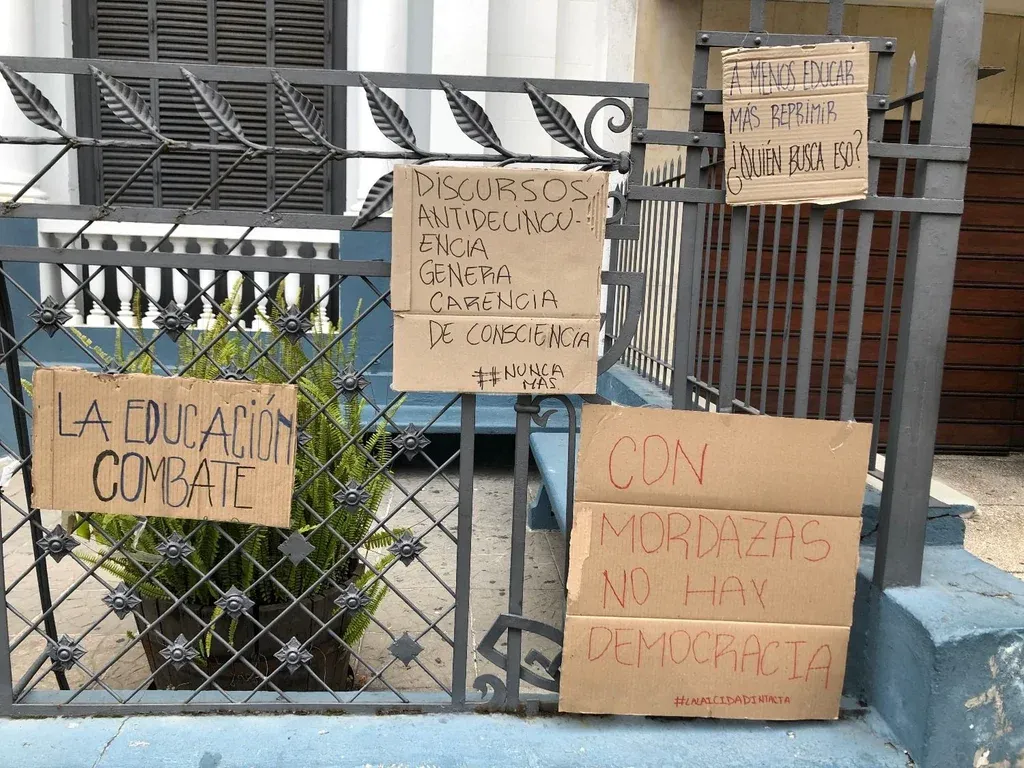 LA EDUCACIÓN
COMBATE
DISCURSOS
ANTIDECINCU-
ENCIA
GENERA
CARENCIA
DE CONSCIENCIA
#NUNCA
MÁS
A MENOS EDUCAR
MÁS REPRIMIR
¿QUIÉN BUSCA ESO?
CON
MORDAZAS
NO HAY
DEMOCRACIA
#LALAICIDADINTACTA